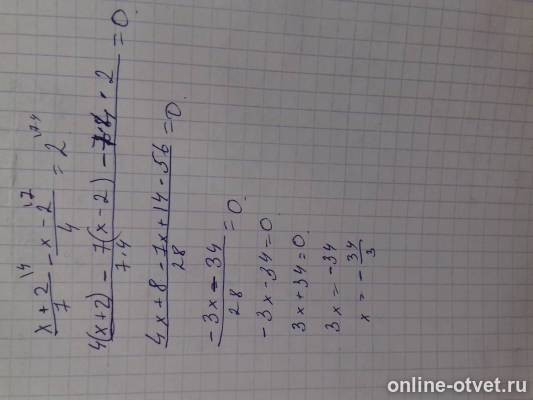 (x+2)/7 \4 - (x-2)/4 \7 = 2 \7·4
(4(x+2) - 7(x-2) - 7·4·2)/(7·4) = 0.
(4x+8-7x+14-56)/28 = 0.
(-3x-34)/28 = 0.
-3x-34=0.
3x+34=0.
3x=-34
x=-34/3
online-otvet.ru